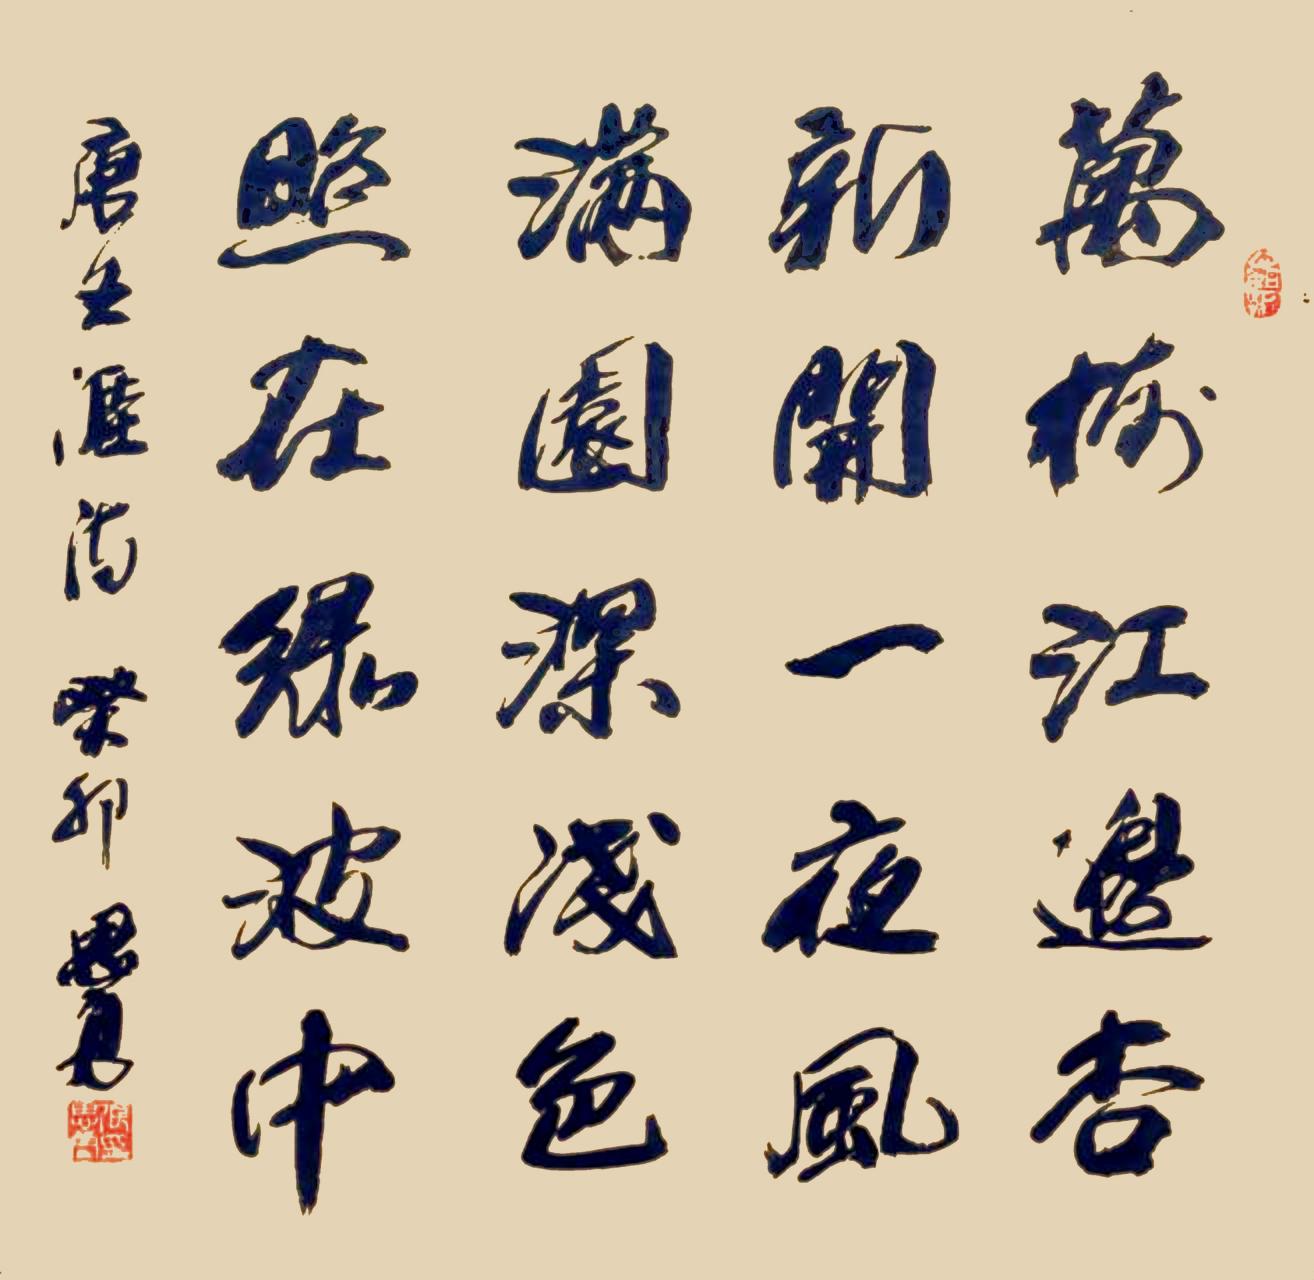 萬樹江邊杏
新開一夜風
滿園深淺色
照在綠波中
唐王涯詩 癸卯